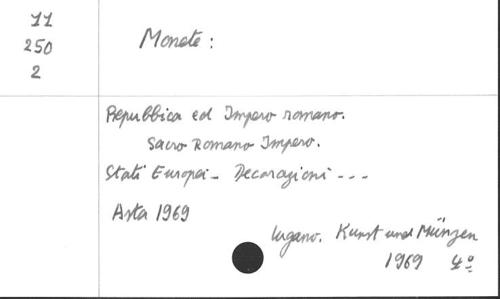 11
250
2
Monete:
Repubblica ed Impero romano.
Sacro Romano Impero.
Stati Europei - Decorazioni ---
Asta 1969
Lugano. Kunst und Münzen
1969 4º